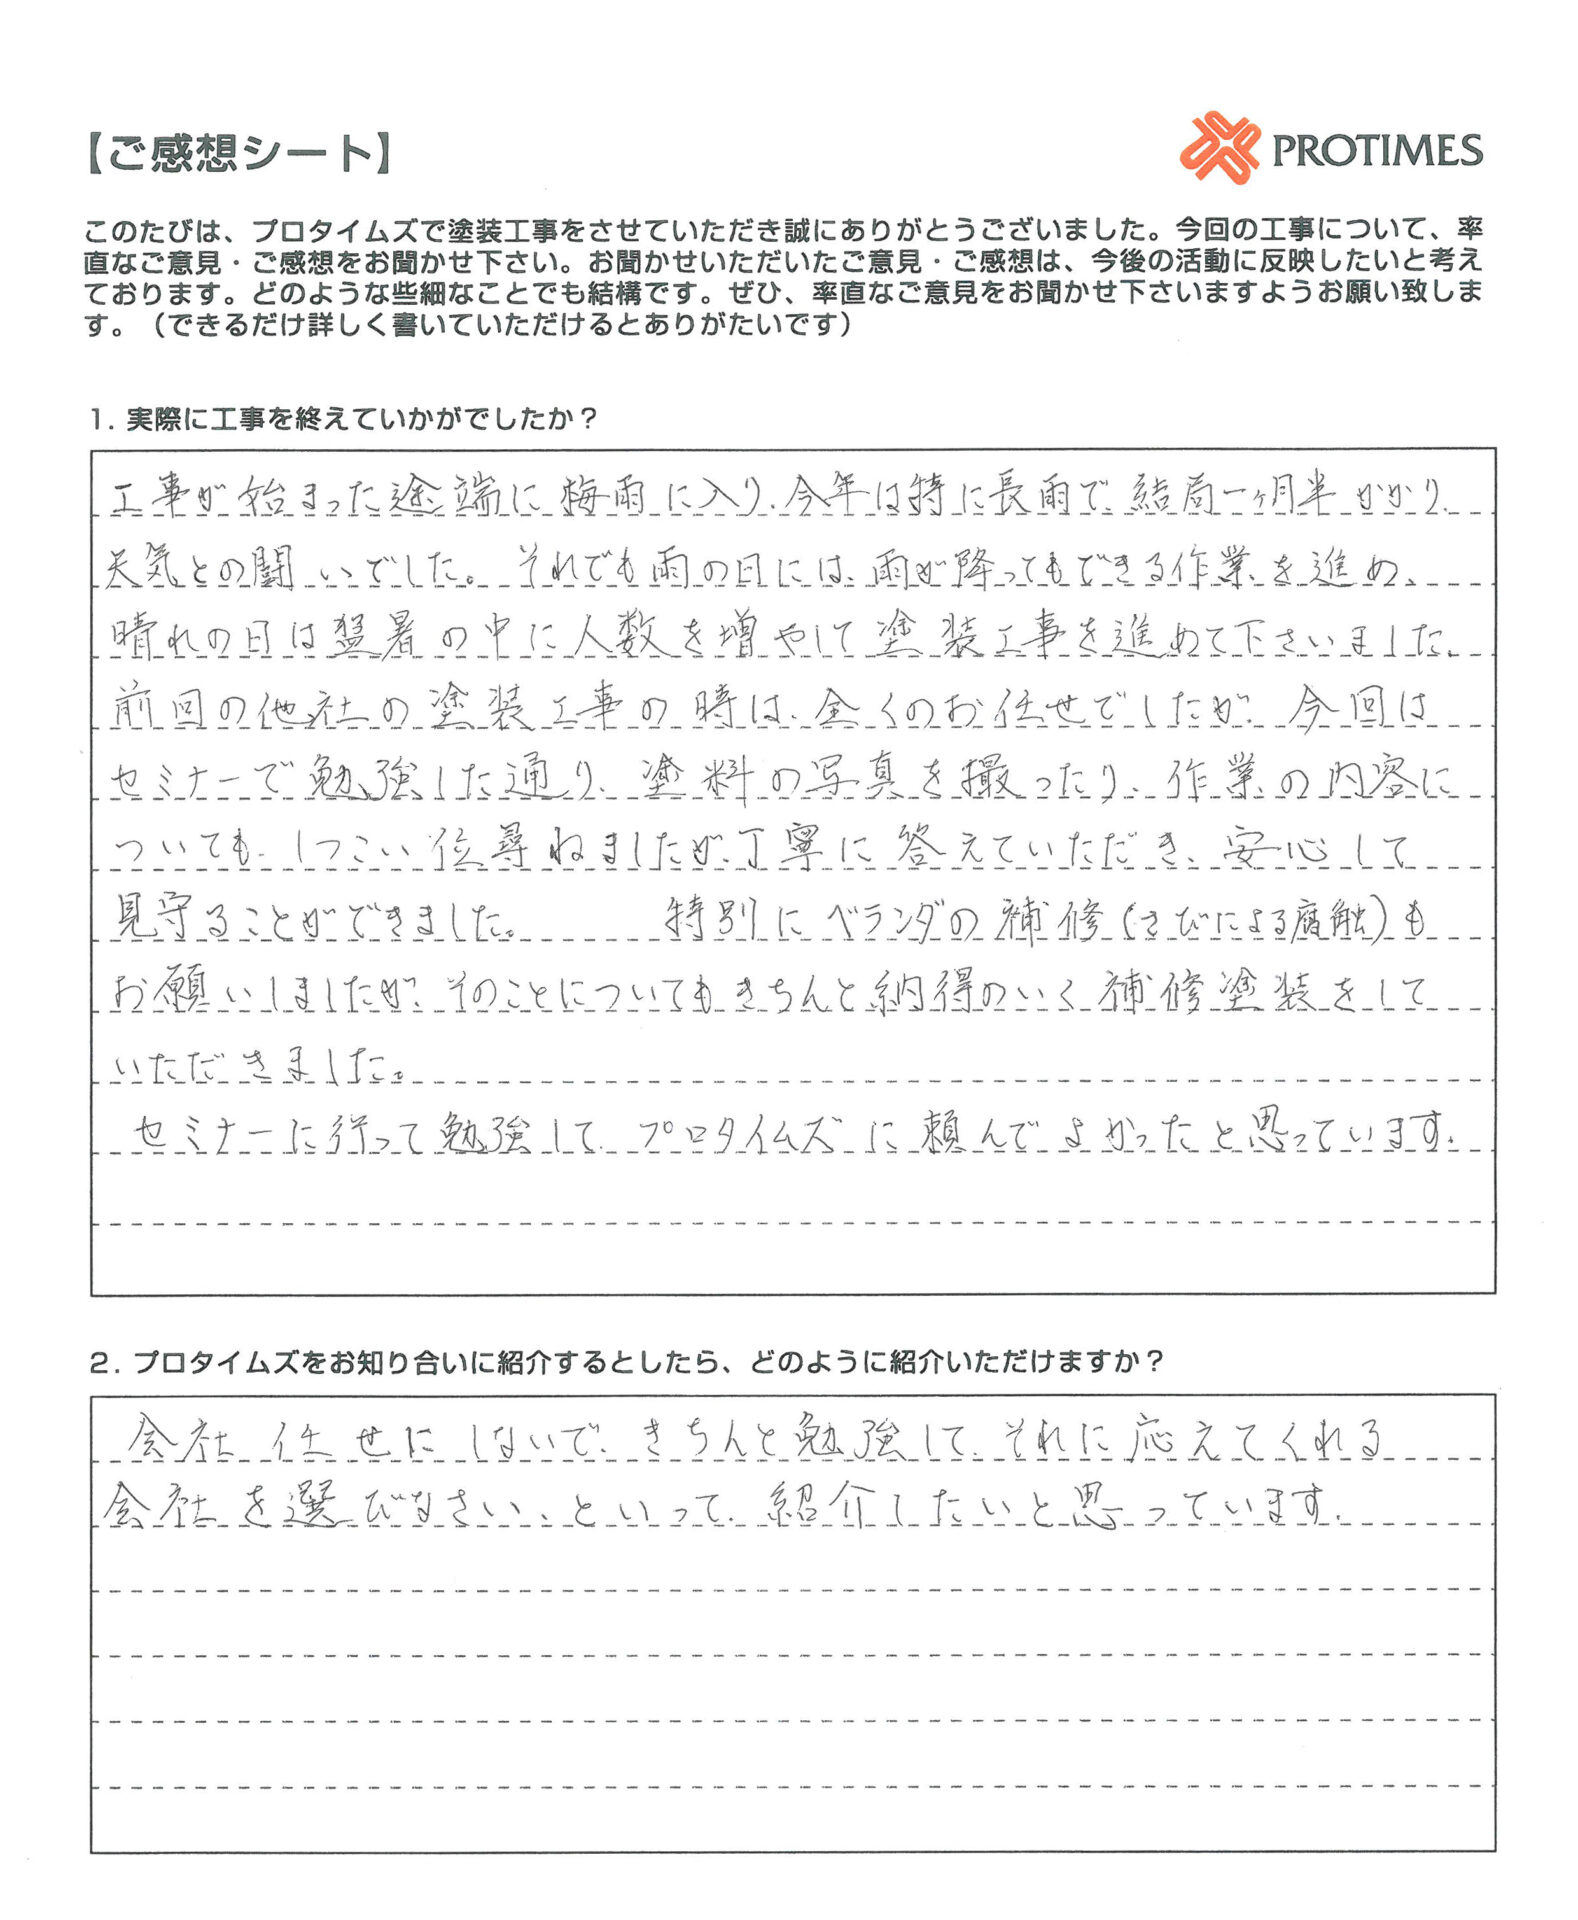 【ご感想シート】
PROTIMES
このたびは、プロタイムズで塗装工事をさせていただき誠にありがとうございました。今回の工事について、率
直なご意見・ご感想をお聞かせ下さい。お聞かせいただいたご意見・ご感想は、今後の活動に反映したいと考え
ております。どのような些細なことでも結構です。ぜひ、率直なご意見をお聞かせ下さいますようお願い致しま
す。（できるだけ詳しく書いていただけるとありがたいです）
1. 実際に工事を終えていかがでしたか？
工事が始まった途端に梅雨に入り、今年は特に長雨で、結局一ヶ月半かかり、
天気との闘いでした。それでも雨の日には、雨が降ってもできる作業を進め、
晴れの日は猛暑の中に人数を増やして塗装工事を進めて下さいました。
前回の他社の塗装工事の時は、全くのお任せでしたが、今回は
セミナーで勉強した通り、塗料の写真を撮ったり、作業の内容に
ついても、しつこい位尋ねましたが、丁寧に答えていただき、安心して
見守ることができました。 特別にベランダの補修(さびによる腐触)も
お願いしましたが、そのことについてもきちんと納得のいく補修塗装をして
いただきました。
セミナーに行って勉強して、プロタイムズに頼んでよかったと思っています。
2. プロタイムズをお知り合いに紹介するとしたら、どのように紹介いただけますか？
会社任せにしないで、きちんと勉強して、それに応えてくれる
会社を選びなさい、といって、紹介したいと思っています。